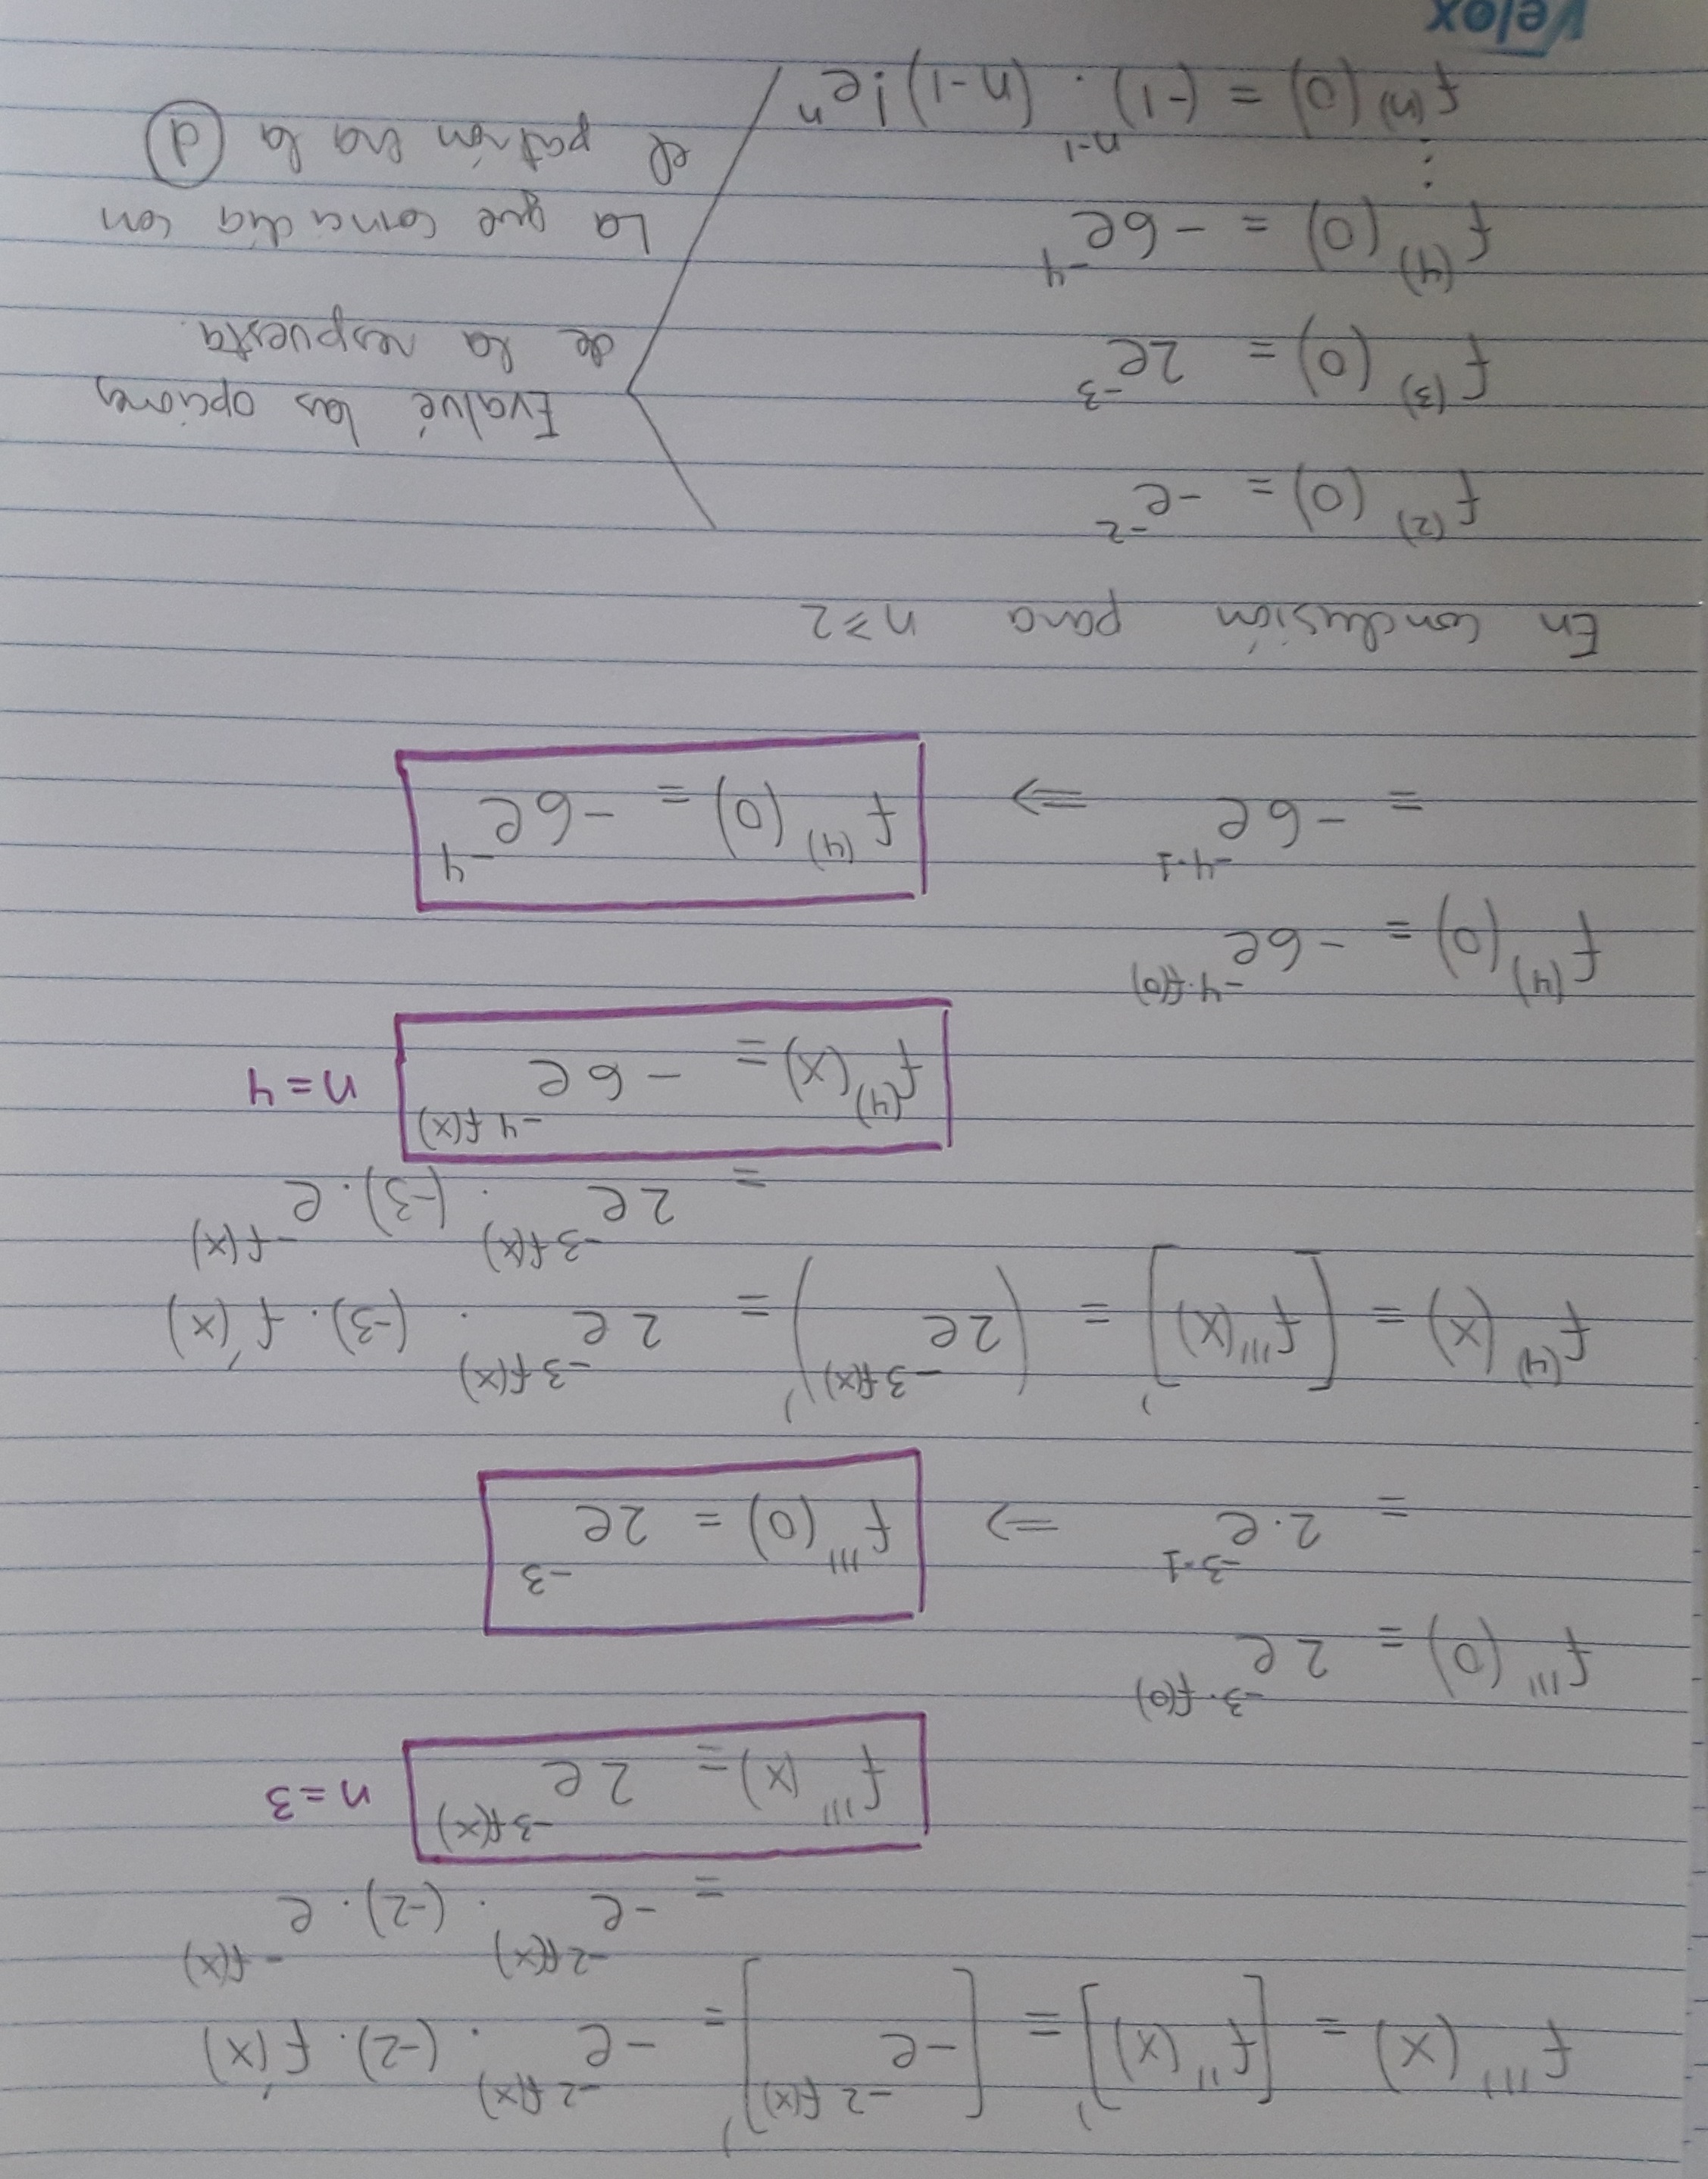 f'''(x) = [f''(x)]' = [-e^{-2f(x)}]' = -e^{-2f(x)} · (-2) · f'(x)
= -e^{-2f(x)} · (-2) · e^{-f(x)}
f'''(x) = 2e^{-3f(x)} n=3
f'''(0) = 2e^{-3·f(0)}
= 2·e^{-3·1} ⇒ f'''(0) = 2e^{-3}
f^{(4)}(x) = [f'''(x)]' = (2e^{-3f(x)})' = 2e^{-3f(x)} · (-3) · f'(x)
= 2e^{-3f(x)} · (-3) · e^{-f(x)}
f^{(4)}(x) = -6e^{-4f(x)} n=4
f^{(4)}(0) = -6e^{-4·f(0)}
= -6e^{-4·1} ⇒ f^{(4)}(0) = -6e^{-4}
En conclusión para n≥2
f^{(2)}(0) = -e^{-2}
f^{(3)}(0) = 2e^{-3}
f^{(4)}(0) = -6e^{-4}
⋮
f^{(n)}(0) = (-1)^{n-1} · (n-1)!e^{n}
Evalué las opciones
de la respuesta.
La que coincidía con
el patrón era la (d)
Velox